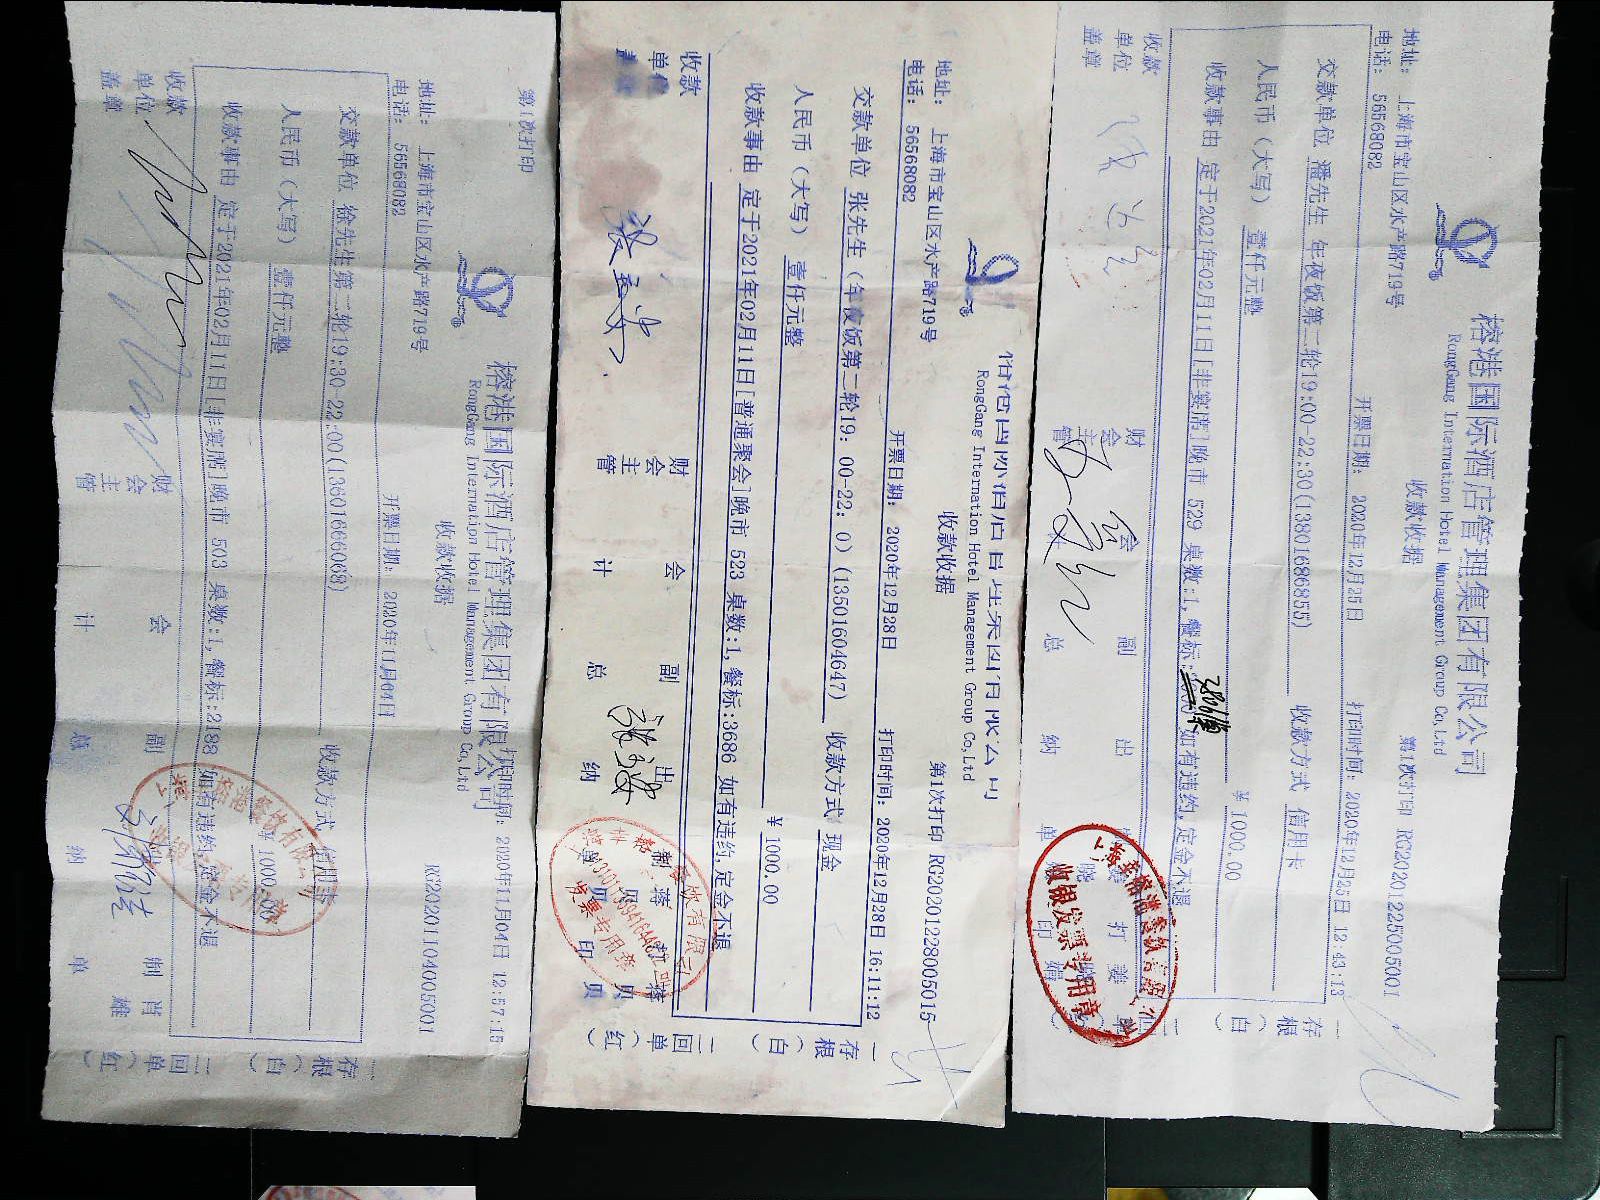 榕港国际酒店管理集团有限公司
RongGang Internation Hotel Management Group Co,Ltd
收款收据
第1次打印 RG20201225005001
地址： 上海市宝山区水产路719号
电话： 56568082
开票日期： 2020年12月25日
打印时间：2020年12月25日 12:43:13
交款单位 潘先生 年夜饭第二轮19:00-22:30(13801686855)
收款方式 信用卡
人民币（大写） 壹仟元整
￥ 1000.00
收款事由 定于2021年02月11日[非宴请]晚市 529 桌数:1,餐标: 如有违约,定金不退
收款单位盖章
财会主管
会计
副总
出纳
打单
一存根（白）
二回单（红）
收银发票专用章
RongGang Internation Hotel Management Group Co,Ltd
收款收据
第1次打印 RG20201228005015
地址： 上海市宝山区水产路719号
电话： 56568082
开票日期： 2020年12月28日
打印时间：2020年12月28日 16:11:12
交款单位 张先生（年夜饭第二轮19：00-22：0）(13501604647)
收款方式 现金
人民币（大写） 壹仟元整
￥ 1000.00
收款事由 定于2021年02月11日[普通聚会]晚市 523 桌数:1,餐标:3686 如有违约,定金不退
收款单位
财会主管
会计
副总
出纳
一存根（白）
二回单（红）
发票专用章
第1次打印
榕港国际酒店管理集团有限公司
RongGang Internation Hotel Management Group Co,Ltd
收款收据
RG20201104005001
地址： 上海市宝山区水产路719号
电话： 56568082
开票日期： 2020年11月04日
时间：2020年11月04日 12:57:15
交款单位 徐先生第二轮19:30-22:00(13601666068)
收款方式 信用卡
人民币（大写） 壹仟元整
￥ 1000.00
收款事由 定于2021年02月11日[非宴请]晚市 503 桌数:1,餐标:2188 如有违约,定金不退
收款单位盖章
财会主管
会计
副总
出纳
制单
肖雄
存根（白）
二回单（红）